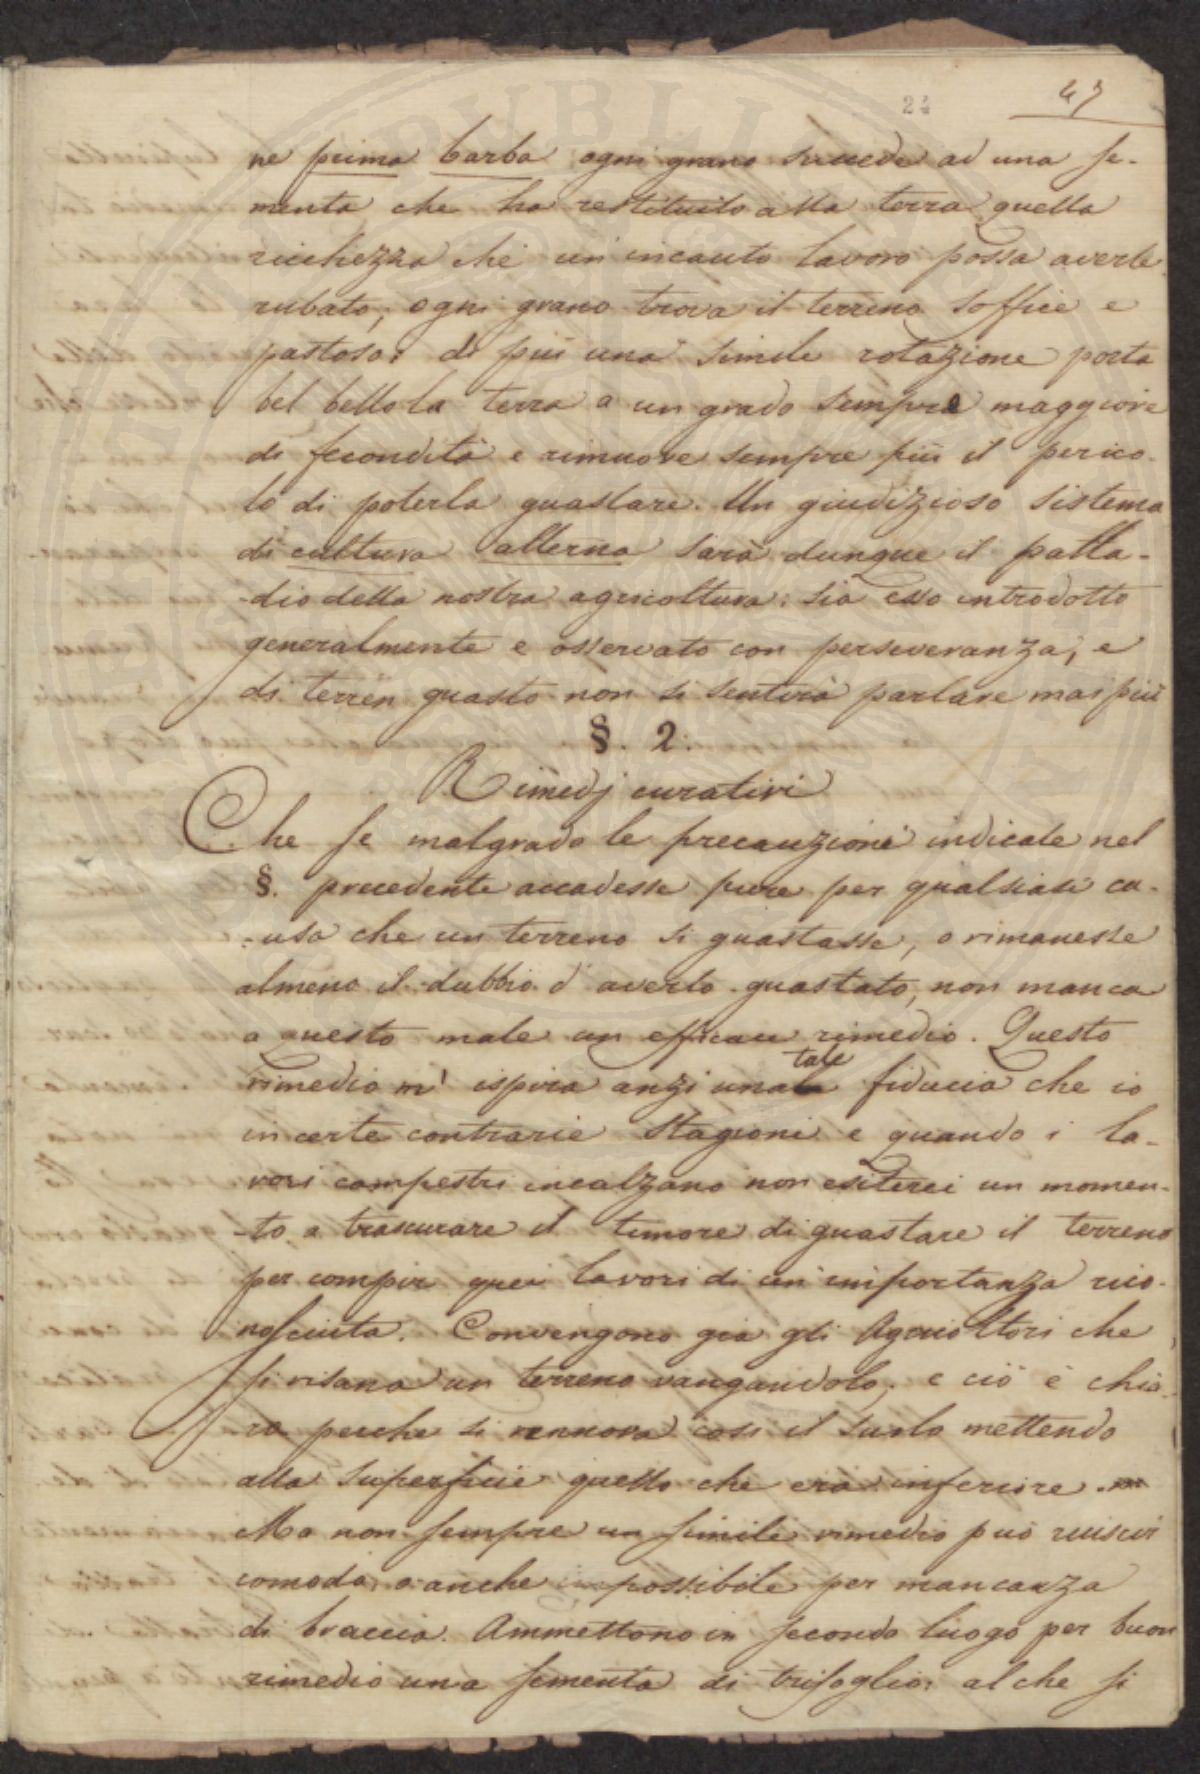 24
47
ne prima barba ogni grano succede ad una se-
menta che ha restituito alla terra quella
ricchezza che un incauto lavoro possa averle
rubato; ogni grano trova il terreno soffice e
pastoso: di più una simile rotazione porta
bel bello la terra a un grado sempre maggiore
di fecondità e rimuove sempre più il perico-
lo di poterla guastare. Un giudizioso sistema
di cultura alterna sarà dunque il palla-
-dio della nostra agricoltura: sia esso introdotto
generalmente e osservato con perseveranza, e
di terren guasto non si sentirà parlare mai più
§. 2.
Rimedj curativi
Che se malgrado le precauzioni indicate nel
§. precedente accadesse pure per qualsiasi ca-
-usa che un terreno si guastasse, o rimanesse
almeno il dubbio d' averlo guastato, non manca
a questo male un efficace rimedio. Questo
rimedio m' ispira anzi una tale fiducia che io
in certe contrarie stagioni e quando i la-
vori campestri incalzano non esiterei un momen-
-to a trascurare il timore di guastare il terreno
per compir quei lavori di un' importanza rico-
nosciuta. Convengono già gli Agricoltori che
si risana un terreno vangandolo, e ciò è chia-
ro perche si rinnova così il suolo mettendo
alla superficie quello che era inferiore.
Ma non sempre un simile rimedio può riuscir
comodo, o anche possibile per mancanza
di braccia. Ammettono in secondo luogo per buon
rimedio una sementa di trifoglio: al che si